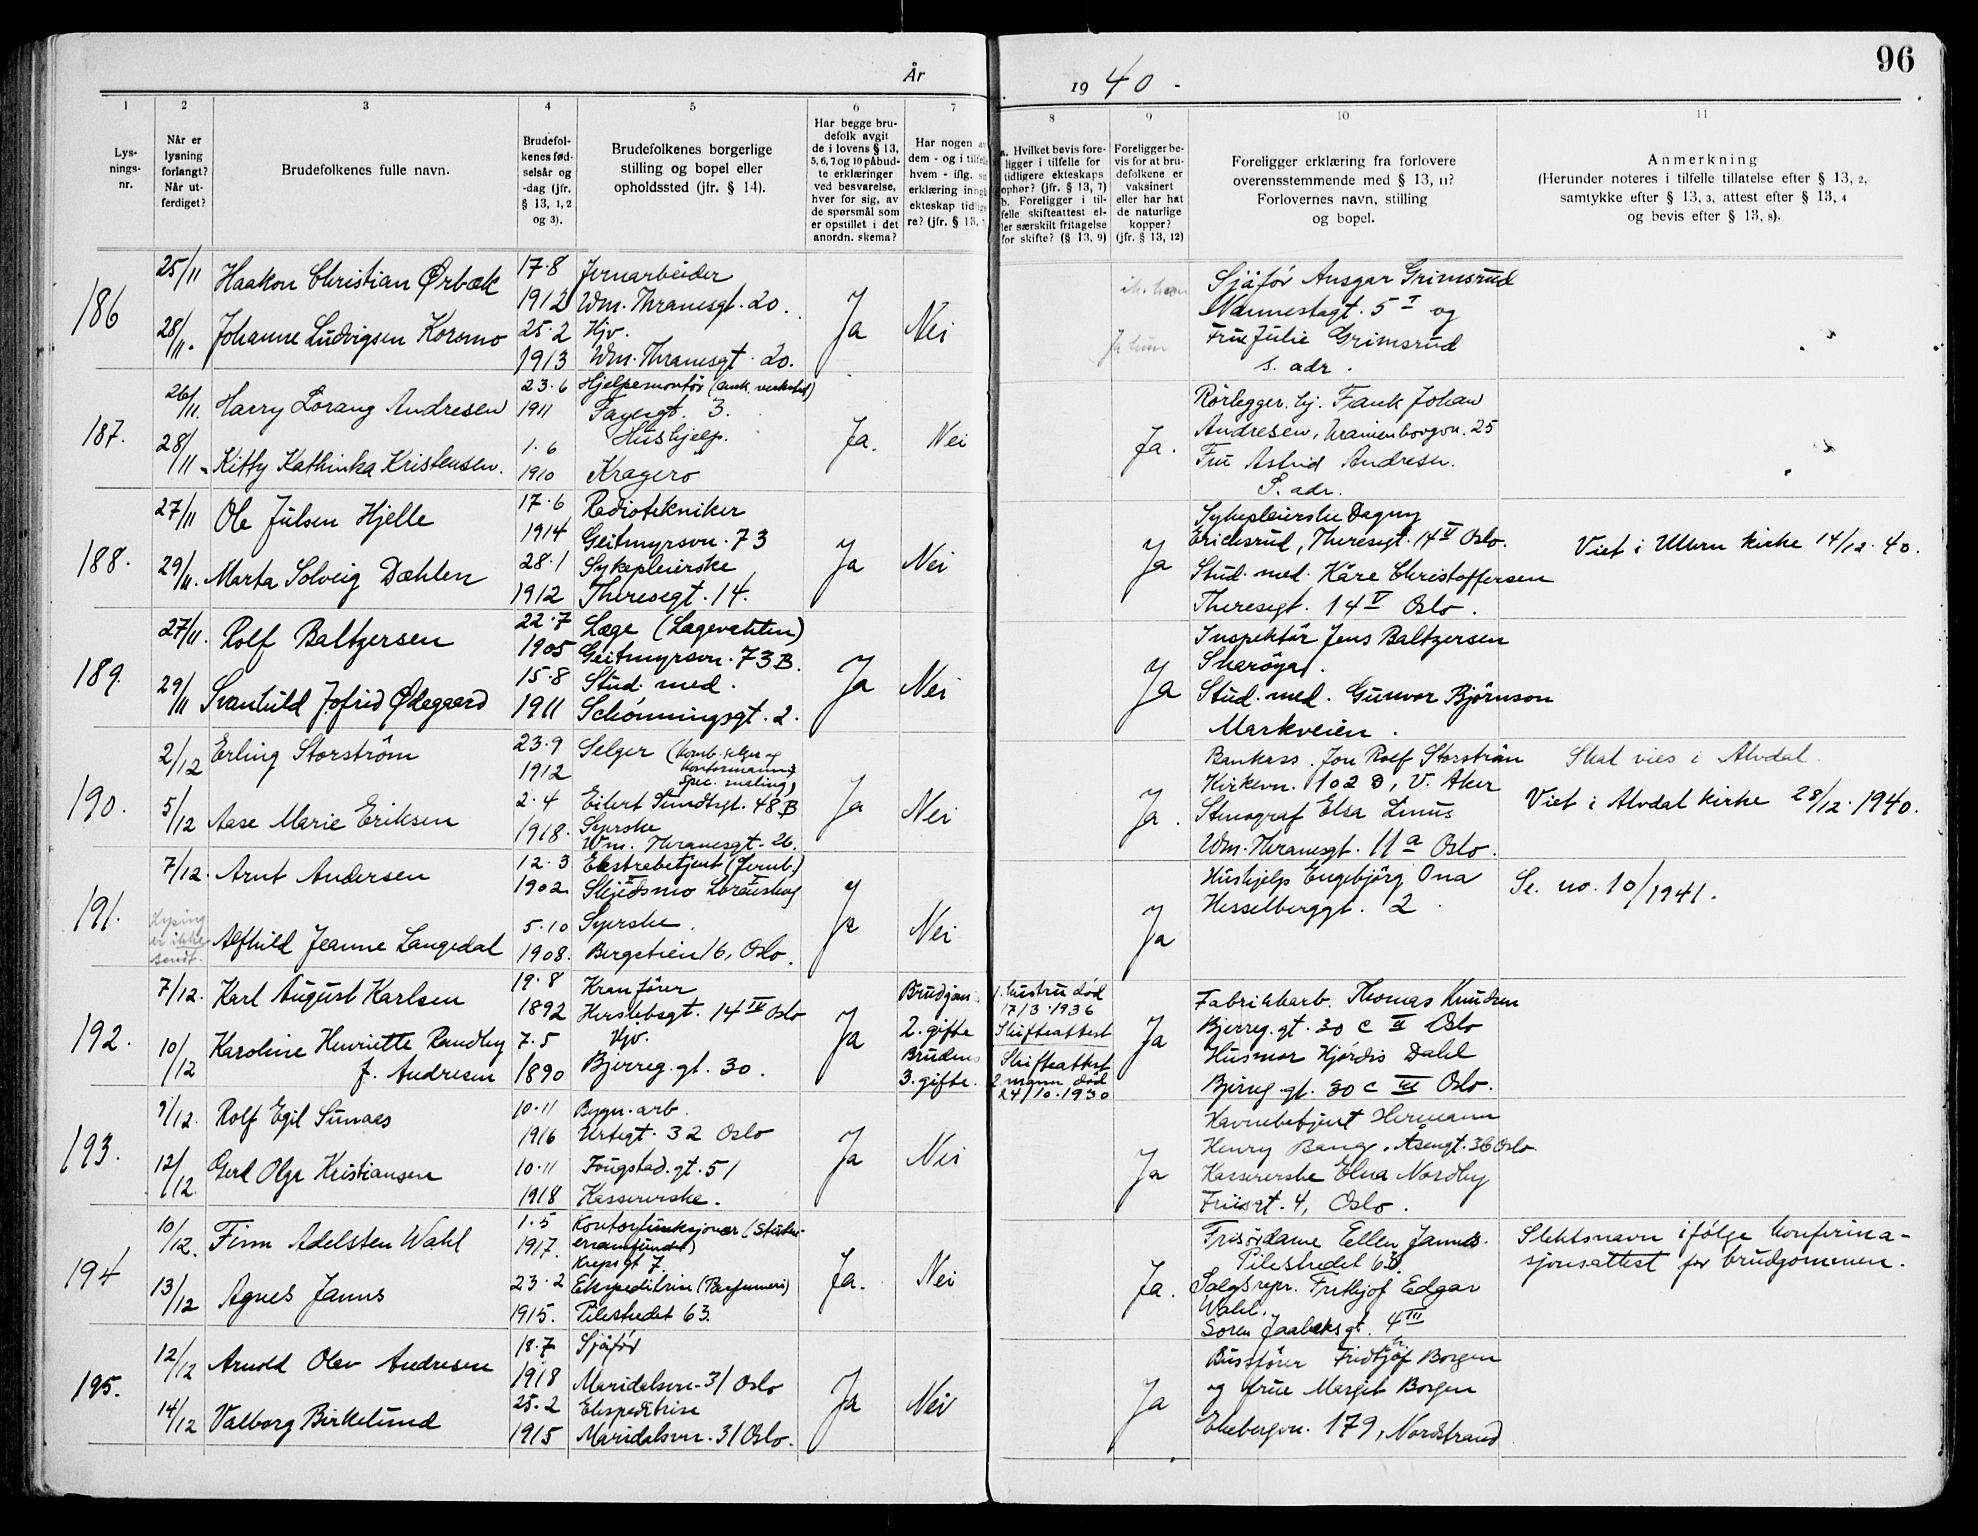 96
År
19 40 -
1
2
3
4
5
6
7
8
9
10
11
Lys-
nings-
nr.
Når er
lysning
forlangt?
Når ut-
ferdiget?
Brudefolkenes fulle navn.
Brudefol-
kenes fød-
selsår og
-dag (jfr.
§ 13, 1, 2
og 3).
Brudefolkenes borgerlige
stilling og bopel eller
opholdssted (jfr. § 14).
Har begge bru-
defolk avgit
de i lovens § 13,
5, 6, 7 og 10 påbud-
te erklæringer
ved besvarelse,
hver for sig, av
de spørsmål som
er opstillet i det
anordn. skema?
Har nogen av
dem - og i tilfelle
hvem - iflg. sin
erklæring inngått
ekteskap tidlige-
re? (jfr. § 13,
a. Hvilket bevis fore-
ligger i tilfelle for
tidligere ekteskaps
ophør? (jfr. § 13, 7)
b. Foreligger i til-
felle skifteattest el-
ler særskilt fritagelse
for skifte? (§ 13, 9)
Foreligger be-
vis for at bru-
defolkene er
vaksinert
eller har hat
de naturlige
kopper?
(jfr. § 13, 12)
Foreligger erklæring fra forlovere
overensstemmende med § 13, 11?
Forlovernes navn, stilling
og bopel.
Anmerkning
(Herunder noteres i tilfelle tillatelse efter § 13, 2,
samtykke efter § 13, 3, attest efter § 13, 4
og bevis efter § 13, 8).
186
25/11
28/11.
Haakon Christian Ørbæk
Johanne Ludvigsen Koromo
17-8
1912
25-2
1913
Jernarbeider
Wm. Thranesgt. 20.
Hjv.
Wm. Thranesgt. 20.
Ja
Nei
Ja hun
Sjåfør Ansgar Grimsrud
Nannestagt. 5 I og
Frue Julie Grimsrud
s. adr.
187.
26/11.
28/11-
Harry Lorang Andresen
Kitty Kathinka Kristensen.
23-6
1911
1-6
1910
Hjelpemontør
Fayegt. 3.
Hushjelp.
Kragerø
Ja.
Nei
Ja.
Rørlegger. hj. Frank Johan
Andresen, Uranienborgvn. 25
Fru Astrid Andresen.
S. adr.
188.
27/11
29/11.
Ole Julsen Hjelle
Marta Solveig Dæhlen
17-6
1914
28-1
1912
Radiotekniker
Geitmyrsvn. 73
Sykepleierske
Theresegt. 14.
Ja
Nei
Ja
Sykepleierske Dagny
Ericksrud, Theresgt. 14 V Oslo.
Stud. med. Kåre Christoffersen
Theresegt. 14 V Oslo.
Viet i Ullern kirke 14/12. 40.
189.
27/11.
29/11
Rolf Baltzersen
Svanhild Jofrid Ødegaard
22-7
1905
15-8
1911
Læge (Lægevakten)
Geitmyrsvn. 73 B.
Stud. med.
Schønningsgt. 2.
Ja
Nei
Ja
Inspektør Jens Baltzersen
Snarøya.
Stud. med. Gunvor Bjørnson
Markveien.
190.
2/12
5/12
Erling Storstrøm
Aase Marie Eriksen
23-9
1912
2-4
1918.
Selger (komb. selger og
kontormann)
Spec. maling)
Eilert Sundtsgt. 48 B
Syerske
Wm. Thranesgt. 26.
Ja
Nei
Ja.
Bankass. Jon Rolf Storstrøm
Kirkevn. 102 D, V. Aker
Stenograf Elsa Linus
Wm. Thranesgt. 11 a Oslo.
Skal vies i Alvdal.
Viet i Alvdal kirke 28/12. 1940.
191.
7/12.
Lysing
er ikke
sendt.
Arnt Andersen
Alfhild Jeanne Langedal
12-3
1902.
5-10
1908.
Ekstrabetjent (Jernb.)
Skjedsmo Lørenskog
Syerske.
Bergstien 16, Oslo.
Ja
Nei
Ja
Hushjelp Engebjørg Ona
Hesselberggt. 2.
Se. no. 10/1941.
192.
7/12.
10/12
Karl August Karlsen
Karoline Henriette Rundby
f. Andresen
19-8
1892
7-5
1890
Kranfører
Herslebsgt. 14 IV Oslo
Hjv.
Bjerreg. gt. 30.
Ja
Brudgom
2. gifte
Brudens
3. gifte.
1. hustru død
17/3-1936
Skifteattest
Skifteattest
2. mann død
24/10-1930
Ja
Fabrikkarb. Thomas Knudsen
Bjerreg. gt. 30 c II Oslo
Husmor Hjørdis Dahl
Bjerreg. gt. 30 c III Oslo.
193.
9/12.
12/12.
Rolf Egil Sunaas
Gerd Olga Kristiansen
10-11
1916
10-11
1918
Bygn. arb.
Urtegt. 32 Oslo
Fougstad. gt. 51
Kassererske.
Ja
Nei
Ja
Havnebetjent Hermann
Henry Bang, Åsengt. 36 Oslo
Kassererske Elna Nordby
Friisgt. 4, Oslo.
194
10/12.
13/12
Finn Adelsten Wahl
Agnes Janus
1-5
1917.
23-2
1915.
Kontorfunksjonær (Studen-
ersamfundet)
Krepsgt 7.
Ekspeditrise (Parfumeri)
Pilestredet 63.
Ja.
Nei
Ja.
Frisørdame Ellen Janus.
Pilestredet 63.
Salgsrepr. Frithjof Edgar
Wahl.
Søren Jaabæksgt. 4 III
Slektsnavn ifølge konfirma-
sjonsattest for brudgommen.
195.
12/12
14/12
Arnold Olav Andresen
Valborg Birkelund
18-7
1918
25-2
1915
Sjåfør
Maridalsvn. 31 Oslo
Ekspeditrise
Maridalsvn. 31 Oslo.
Ja
Nei
Ja
Bussfører Fridtjof Borgen
og frue Margit Borgen
Ekebergvn. 179, Nordstrand